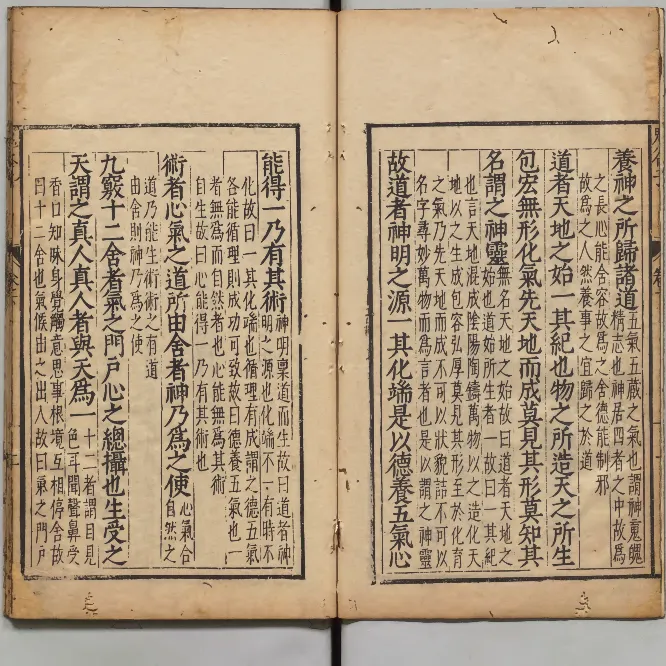 養神之所歸諸道
五氣五藏之氣也謂神䰟魄
精志也神居四者之中故爲
之長心能舍容故爲之舍德能制邪
故爲之人然養事之宜歸之於道
道者天地之始一其紀也物之所造天之所生
包宏無形化氣先天地而成莫見其形莫知其
名謂之神靈
無名天地之始故曰道者天地之
始也道始所生者一故曰一其紀
也言天地混成陰陽陶鑄萬物以之造化天
地以之生成包容弘厚莫見其形至於化育
之氣乃先天地而成不可以狀貌詰不可以
名字尋妙萬物而爲言者也是以謂之神靈
故道者神明之源一其化端是以德養五氣心
能得一乃有其術
神明稟道而生故曰道者神
明之源也化端不一有時不
化故曰一其化端也循理有成謂之德五氣
各能循理則成功可致故曰德養五氣也一
者無爲而自然者也心能無爲其術
自生故曰心能得一乃有其術也
術者心氣之道所由舍者神乃爲之使
心氣合
自然之
道乃能生術術之有道
由舍則神乃爲之使
九竅十二舍者氣之門戶心之總攝也生受之
天謂之真人真人者與天爲一
十二者謂目見
色耳聞聲鼻受
香口知味身覺觸意思事根境互相停舍故
曰十二舍也氣候由之出入故曰氣之門戶